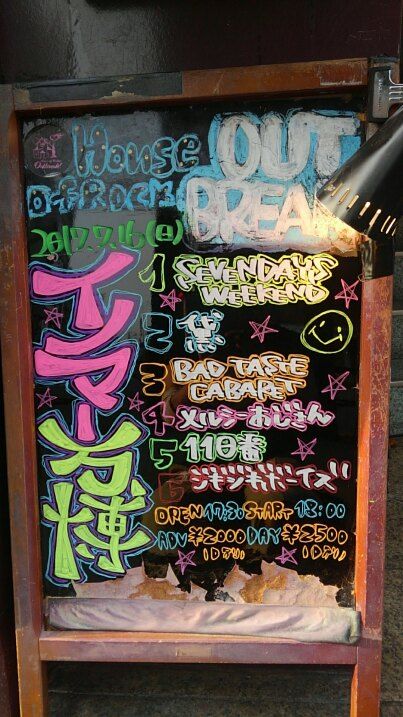 House OUT
OF ROCK BREAK
2017.7.16(日)
イノマー万博
1 SEVENDAYS WEEKEND
2 黛
3 BAD TASTE CABARET
4 メルラーおじさん
5 110番
6 ジキジキボーイズ
OPEN 17:30 START 18:00
ADV ¥2000 DAY ¥2500
(Dあり) (Dあり)